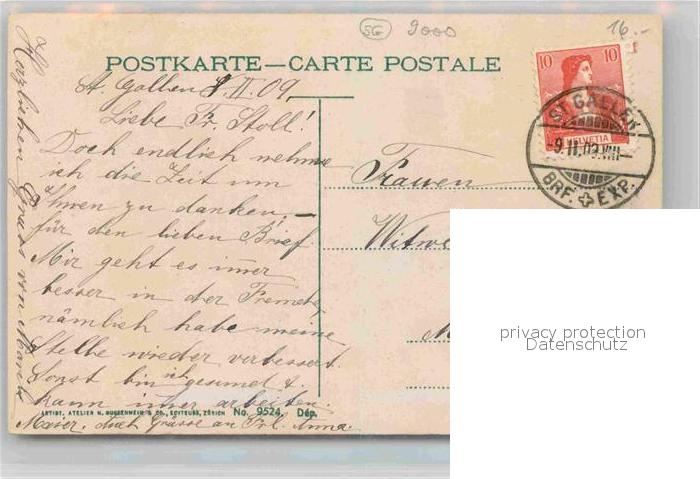 SG 9000
16.-
POSTKARTE—CARTE POSTALE
10 10
HELVETIA
ST GALLEN
-9.II.09.VIII-
BRF. EXP.
St. Gallen 8.II.09
Liebe Fr. Stoll!
Doch endlich nehme
ich die Zeit um
Ihnen zu danken,
für den lieben Brief.
Mir geht es imer
besser in der Fremde,
nämlich habe meine
Stelle wieder verbessert.
Sonst bin ich gesund &
kann imer arbeiten.
auch Grüsse an Frl. Anna.
Herzlichen Gruss von
Frauen
Witwe
ARTIST. ATELIER H. GUGGENHEIM & CO., EDITEURS, ZÜRICH No. 9524. Dép.
privacy protection
Datenschutz